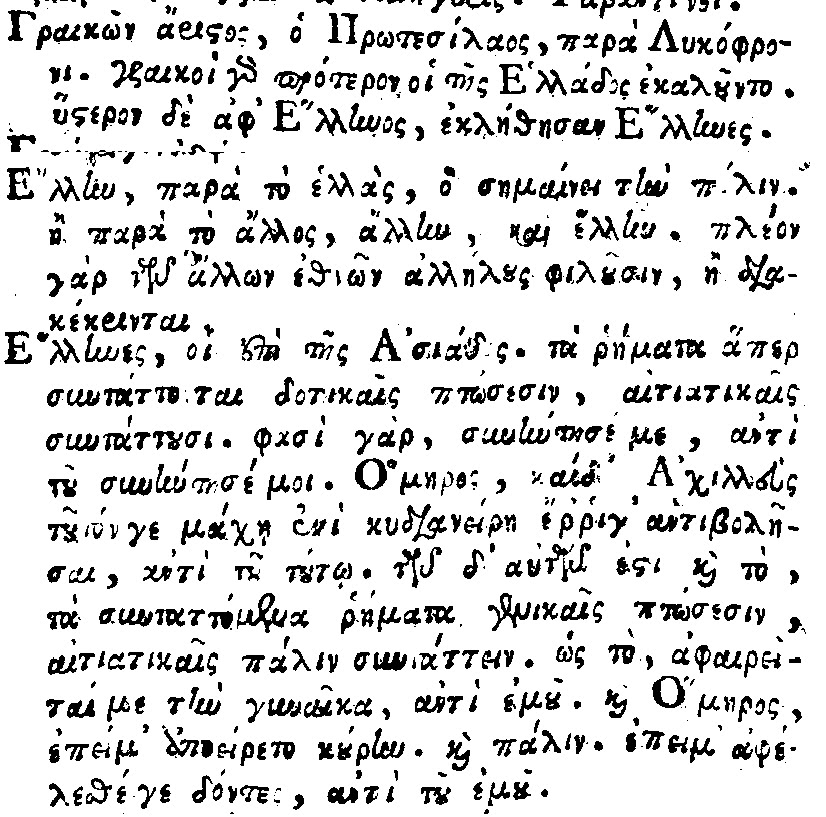 Γραικῶν ἄριστος, ὁ Πρωτεσίλαος, παρὰ Λυκόφρο-
νι. γραικοὶ γὸ πρότερον οἱ τῆς Ἑλλάδος ἐκαλοῦντο.
ὕστερον δὲ ἀφ' Ἕλληνος, ἐκλήθησαν Ἕλληνες.
Ἕλλην, παρὰ τὸ ἑλλὰς, ὃ σημαίνει τὴν πόλιν.
ἢ παρὰ τὸ ἄλλος, ἄλλην, καὶ ἕλλην. πλέον
γὰρ τῶν ἄλλων ἐθνῶν ἀλλήλους φιλοῦσιν, ἢ δια-
κέκρινται.
Ἕλληνες, οἱ ὑπὸ τῆς Ἀσιάδος. τὰ ῥήματα ἅπερ
συντάττονται δοτικαῖς πτώσεσιν, αἰτιατικαῖς
συντάττουσι. φασὶ γὰρ, συνήντησέ με, ἀντὶ
τοῦ συνήντησέ μοι. Ὅμηρος, καὶ δ' Ἀχιλλεὺς
τοῦτόν γε μάχῃ ἐνὶ κυδιανείρῃ ἔρριγ' ἀντιβολῆ-
σαι, ἀντὶ τοῦ τούτῳ. τῶν δ' αὐτῶν ἐστι καὶ τὸ,
τὰ συνταττόμενα ῥήματα γενικαῖς πτώσεσιν,
αἰτιατικαῖς πάλιν συντάττειν. ὡς τὸ, ἀφαιρεῖ-
ταί με τὴν γυναῖκα, ἀντὶ ἐμοῦ. καὶ Ὅμηρος,
ἐπεί μ' ἀπαείρετο κούρην. καὶ πάλιν. ἐπεί μ' ἀφέ-
λεσθέ γε δόντες, ἀντὶ τοῦ ἐμοῦ.